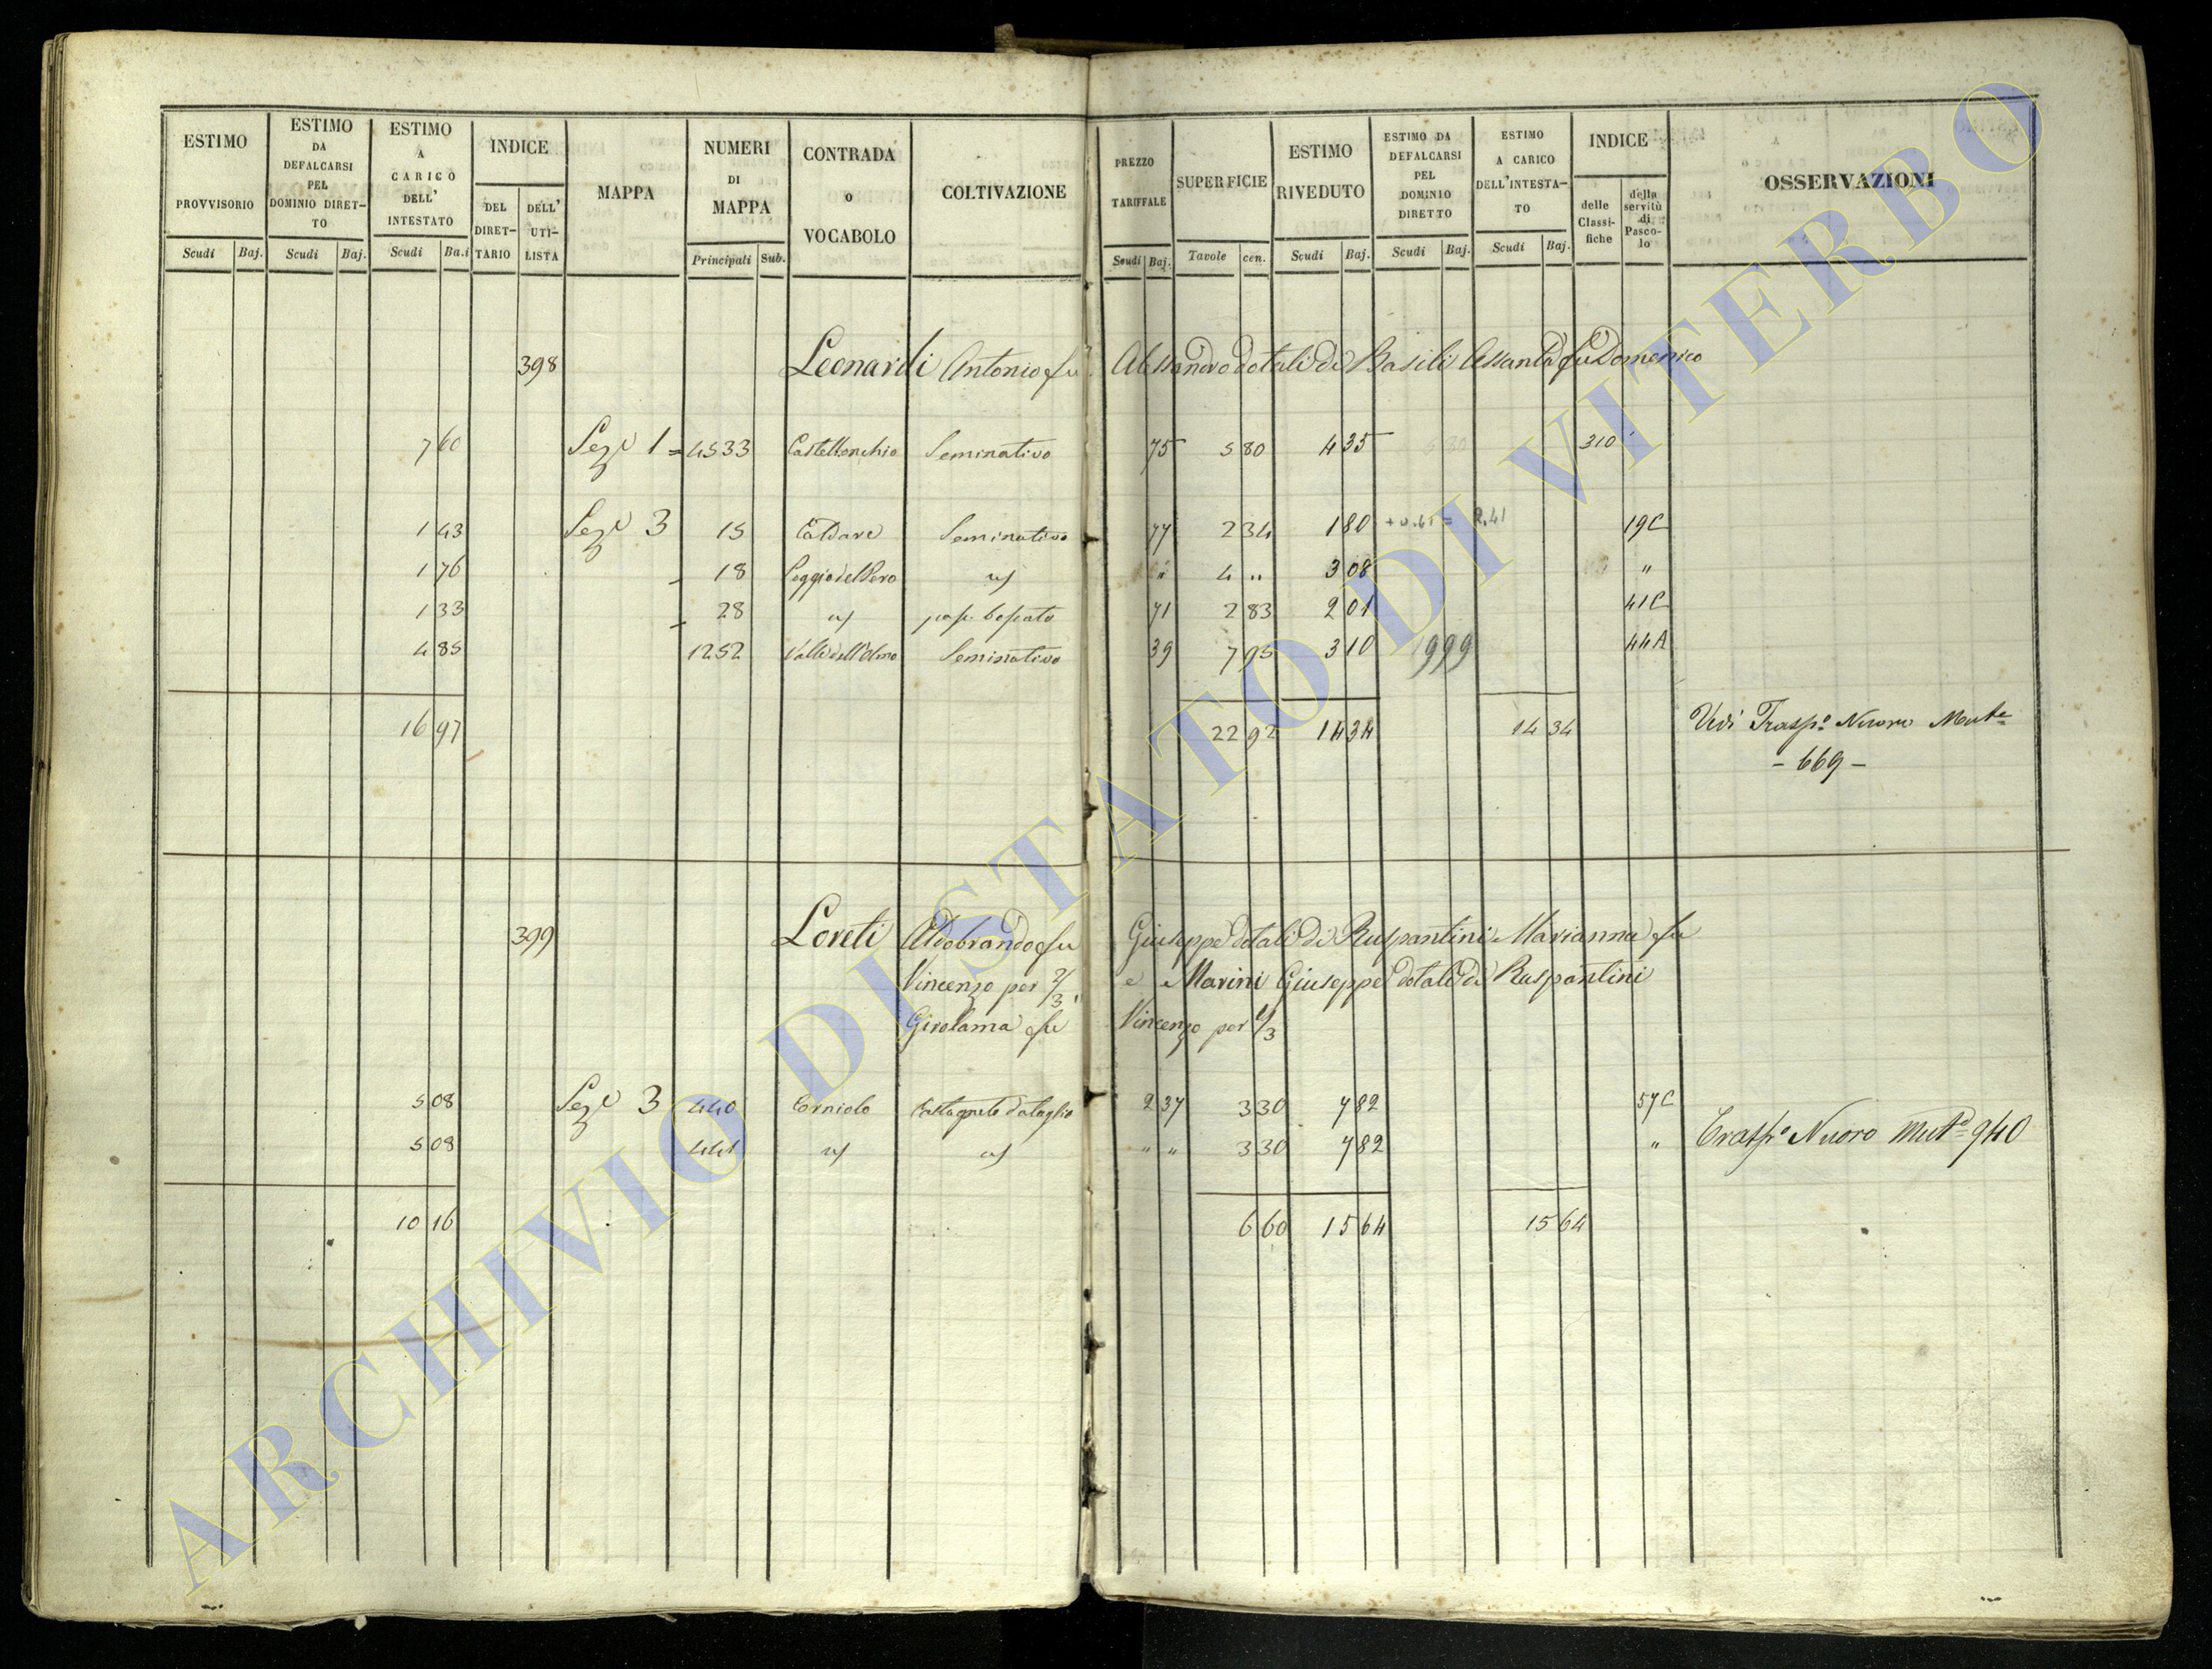 ESTIMO PROVVISORIO Scudi Baj.
ESTIMO DA DEFALCARSI PEL DOMINIO DIRET- TO Scudi Baj.
ESTIMO A CARICO DELL' INTESTATO Scudi Ba.i
INDICE
DEL DIRET- TARIO
DELL' UTI- LISTA
MAPPA
NUMERI DI MAPPA Principali Sub.
CONTRADA o VOCABOLO
COLTIVAZIONE
PREZZO TARIFFALE Scudi Baj.
SUPERFICIE Tavole cen.
ESTIMO RIVEDUTO Scudi Baj.
ESTIMO DA DEFALCARSI PEL DOMINIO DIRETTO Scudi Baj.
ESTIMO A CARICO DELL'INTESTA- TO Scudi Baj.
INDICE
delle Classi- fiche
della servitù di Pasco- lo
OSSERVAZIONI
398 Leonardi Antonio fu Alessandro dotali di Basili Assunta fu Domenico
7 60 Sez.e 1 = 4533 Castellonchio Seminativo 75 5 80 4 35 310
1 43 Sez.e 3 15 Caldare Seminativo 77 2 34 1 80 19C
1 76 18 Poggio del Pero " 4 " 3 08 "
1 33 28 pasc. boscato 71 2 83 2 01 41C
4 85 1252 Valle dell'Olmo Seminativo 39 7 95 3 10 999 44A
16 97 22 92 14 34 14 34 Vedi Trasp.o Nuovo Mut.e
- 669 -
399 Loreti Aldobrando fu Giuseppe dotali di Ruspantini Marianna fu
Vincenzo per 2/3, e Marini Giuseppe dotali di Ruspantini
Girolama fu Vincenzo per 1/3
5 08 Sez.e 3 440 Corniolo Castagneto da taglio 2 37 3 30 7 82 57C
5 08 441 " " 3 30 7 82 " Trasp.o Nuovo Mut.e 940
10 16 6 60 15 64 15 64
ARCHIVIO DI STATO DI VITERBO